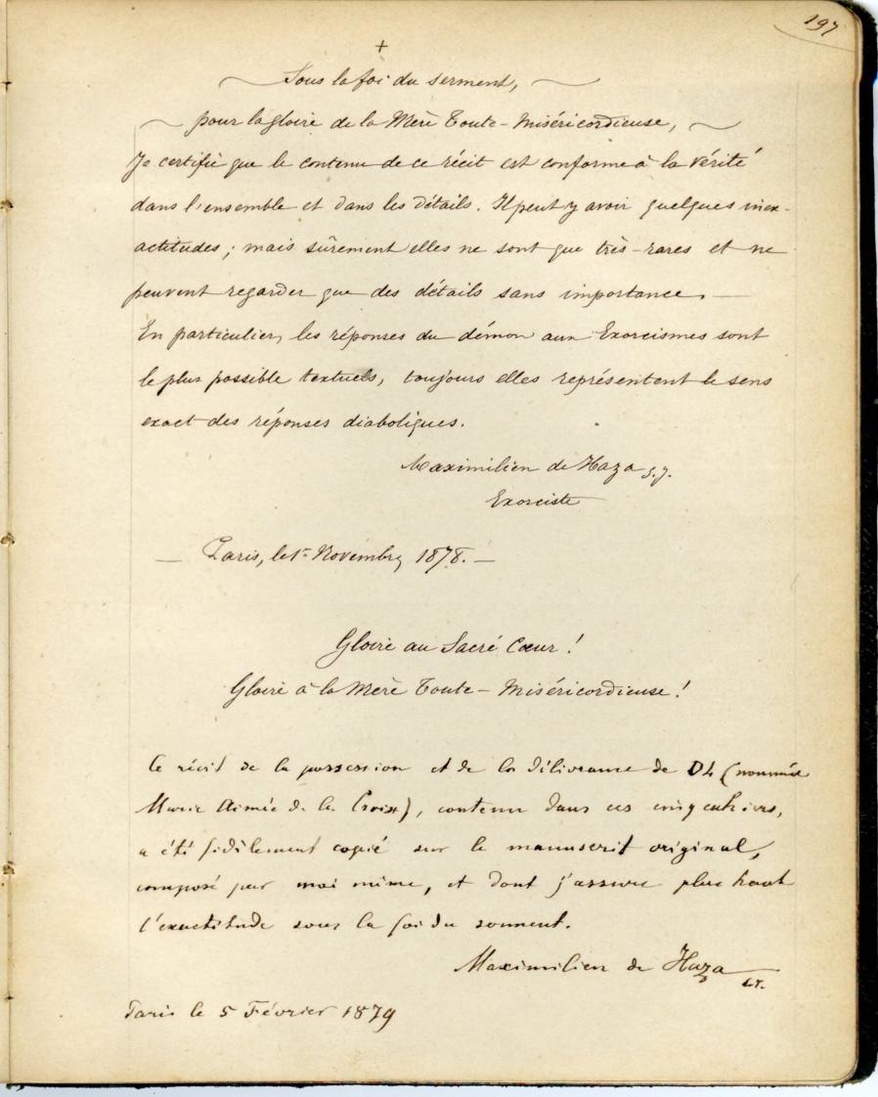 197
+
Sous la foi du serment,
pour la gloire de la Mère Toute-Miséricordieuse,
Je certifie que le contenu de ce récit est conforme à la vérité
dans l'ensemble et dans les détails. Il peut y avoir quelques inex-
actitudes ; mais sûrement elles ne sont que très-rares et ne
peuvent regarder que des détails sans importance. —
En particulier, les réponses du démon aux Exorcismes sont
le plus possible textuels, toujours elles représentent le sens
exact des réponses diaboliques.
Maximilien de Haza S.J.
Exorciste
— Paris, le 1r Novembre 1878. —
Gloire au Sacré Cœur !
Gloire à la Mère Toute-Miséricordieuse !
Ce récit de la possession et de la délivrance de DL (nommée
Marie Aimée de la Croix), contenu dans ces cinq cahiers,
a été fidèlement copié sur le manuscrit original,
composé par moi même, et dont j'assure plus haut
l'exactitude sous la foi du serment.
Maximilien de Haza
S.J.
Paris le 5 Février 1879